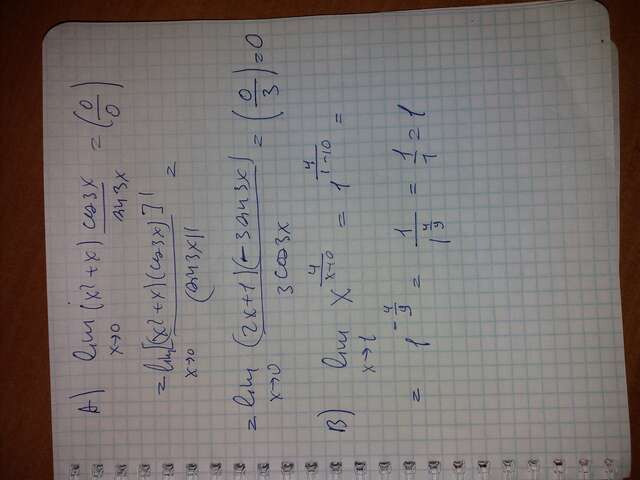 A) lim x→0 (x²+x) cos3x / sin3x = (0/0)
= lim x→0 [(x²+x)(cos3x)]' / (sin3x)' =
= lim x→0 (2x+1)(-3sin3x) / 3cos3x = (0/3) = 0
B) lim x→1 x^(4/(x-10)) = 1^(4/(1-10)) =
= 1^(-4/9) = 1/1^(4/9) = 1/1 = 1